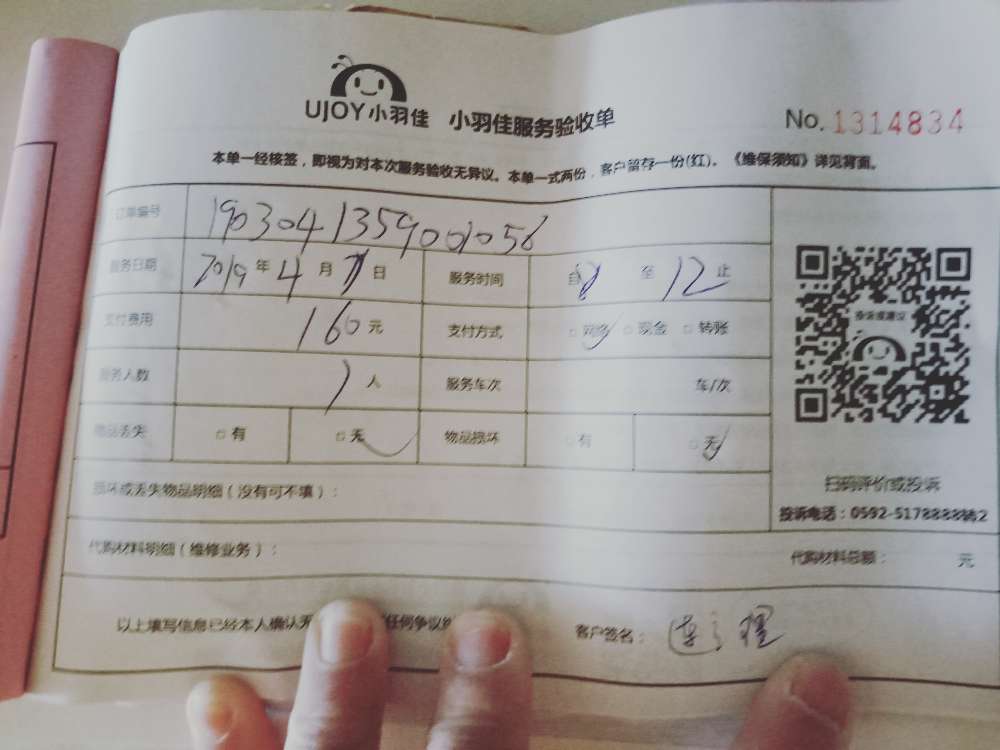 UJOY小羽佳 小羽佳服务验收单
No. 1314834
本单一经核签，即视为对本次服务验收无异议。本单一式两份，客户留存一份(红)。《维保须知》详见背面。
订单编号 190304135900105
服务日期 2019年4月 日 服务时间 自8 至 12 止
支付费用 160元 支付方式 □网络 □现金 □转账
服务人数 1人 服务车次 车/次
物品丢失 □有 □无 物品损坏 □有 □无
损坏或丢失物品明细（没有可不填）：
代购材料明细（维修业务）： 代购材料总额： 元
投诉或建议
扫码评价或投诉
投诉电话：0592-5178888转2
以上填写信息已经本人确认无 任何争议
客户签名：